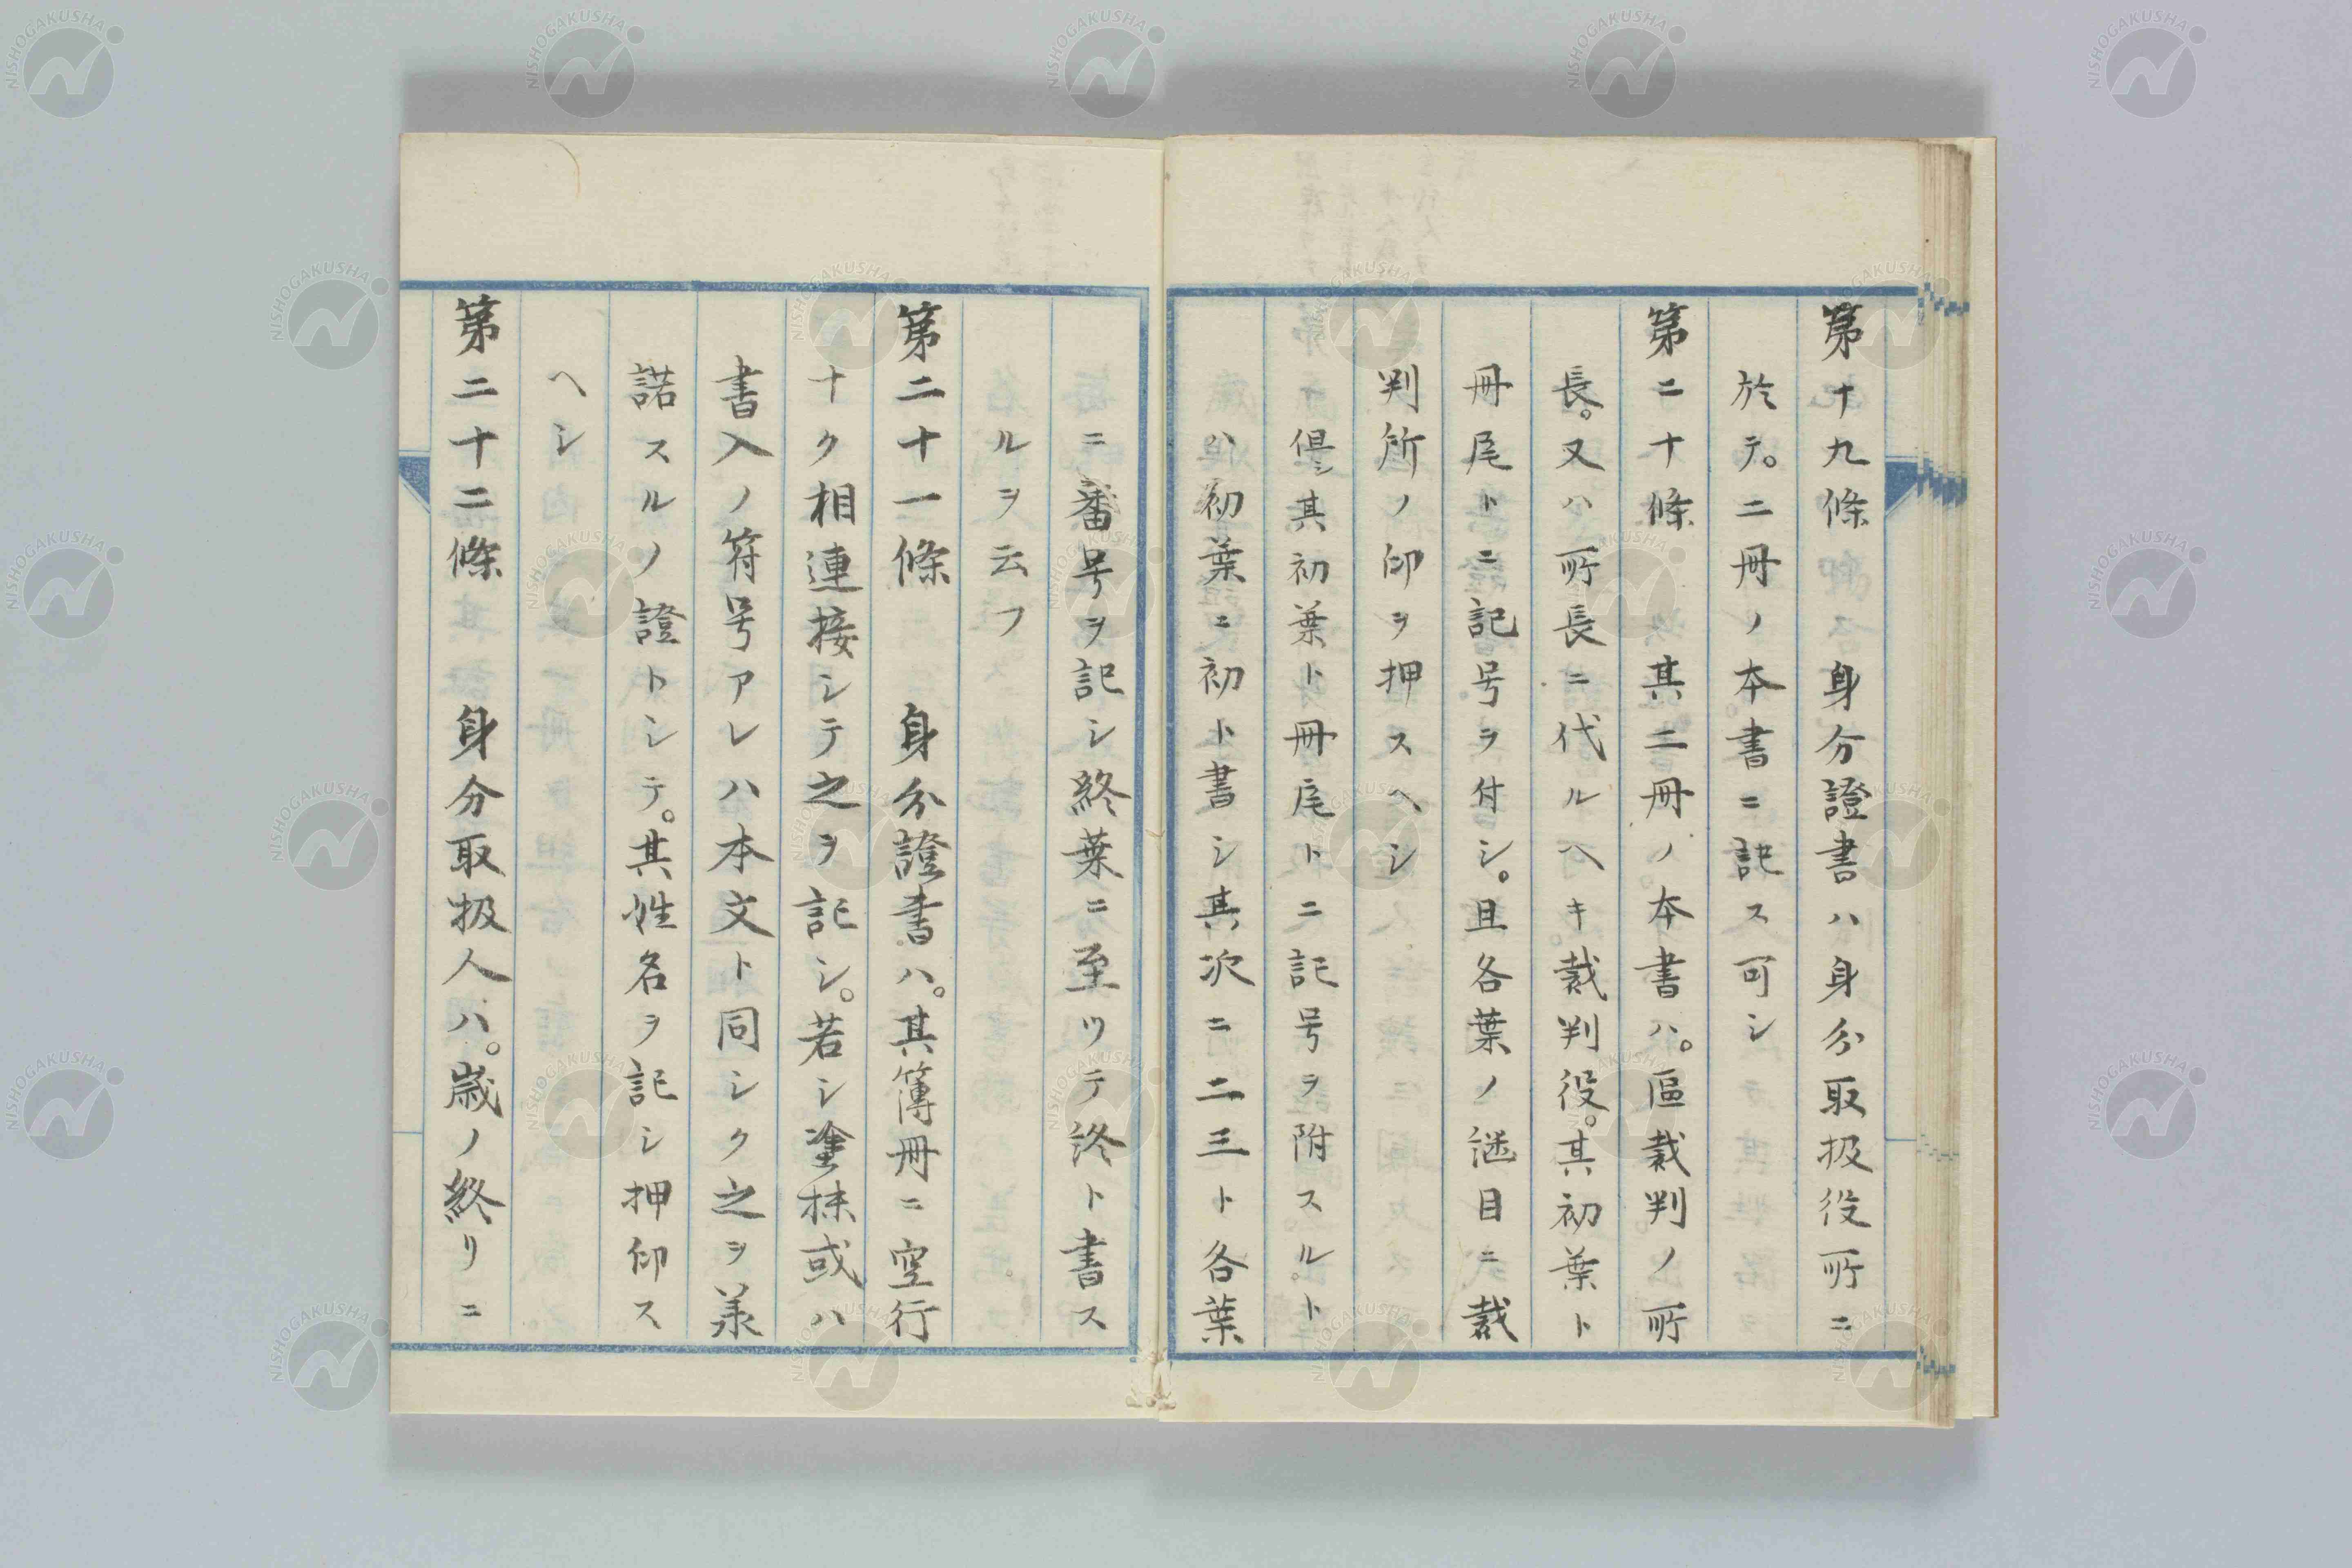 第十九條　身分證書ハ身分取扱役所ニ
於テ。二冊ノ本書ニ記ス可シ
第二十條　其二冊ノ本書ハ。區裁判ノ所
長。又ハ所長ニ代ルヘキ裁判役。其初葉ト
冊尾トニ記号ヲ付シ。且各葉ノ繼目ニ裁
判所ノ印ヲ押スヘシ
但シ其初葉ト冊尾トニ記号ヲ附スル。ト
ハ初葉ニ初ト書シ其次ニ二三ト各葉
ニ番号ヲ記シ終葉ニ至ツテ終ト書ス
ルヲ云フ
第二十一條　身分證書ハ。其簿冊ニ空行
ナク相連接シテ之ヲ記シ。若シ塗抹或ハ
書入ノ符号アレハ本文ト同シク之ヲ羕
諾スルノ證トシテ。其姓名ヲ記シ押印ス
ヘシ
第二十二條　身分取扱人ハ。歳ノ終リニ
NISHOGAKUSHA